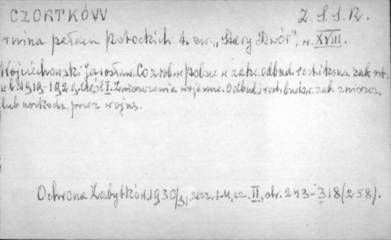 CZORTKÓW Z.S.S.R.
ruina pałacu Potockich t. zw. "Stary Dwór", w. XVIII.
Wojciechowski Jarosław. Co zrob. w Polsce w zakr. odbud. i restikons. zab. szt.
w l. 1919-1929. Część I. Zniszczenia wojenne. Odbud. i rest. budow. zab. zniszcz.
lub uszkodz. przez wojnę.
Ochrona Zabytków. 1930/31, zesz. 1-4, cz. II, str. 243-318 (258).